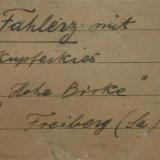 Fahlerz mit
Kupferkies
"Hohe Birke"
Freiberg (Sa